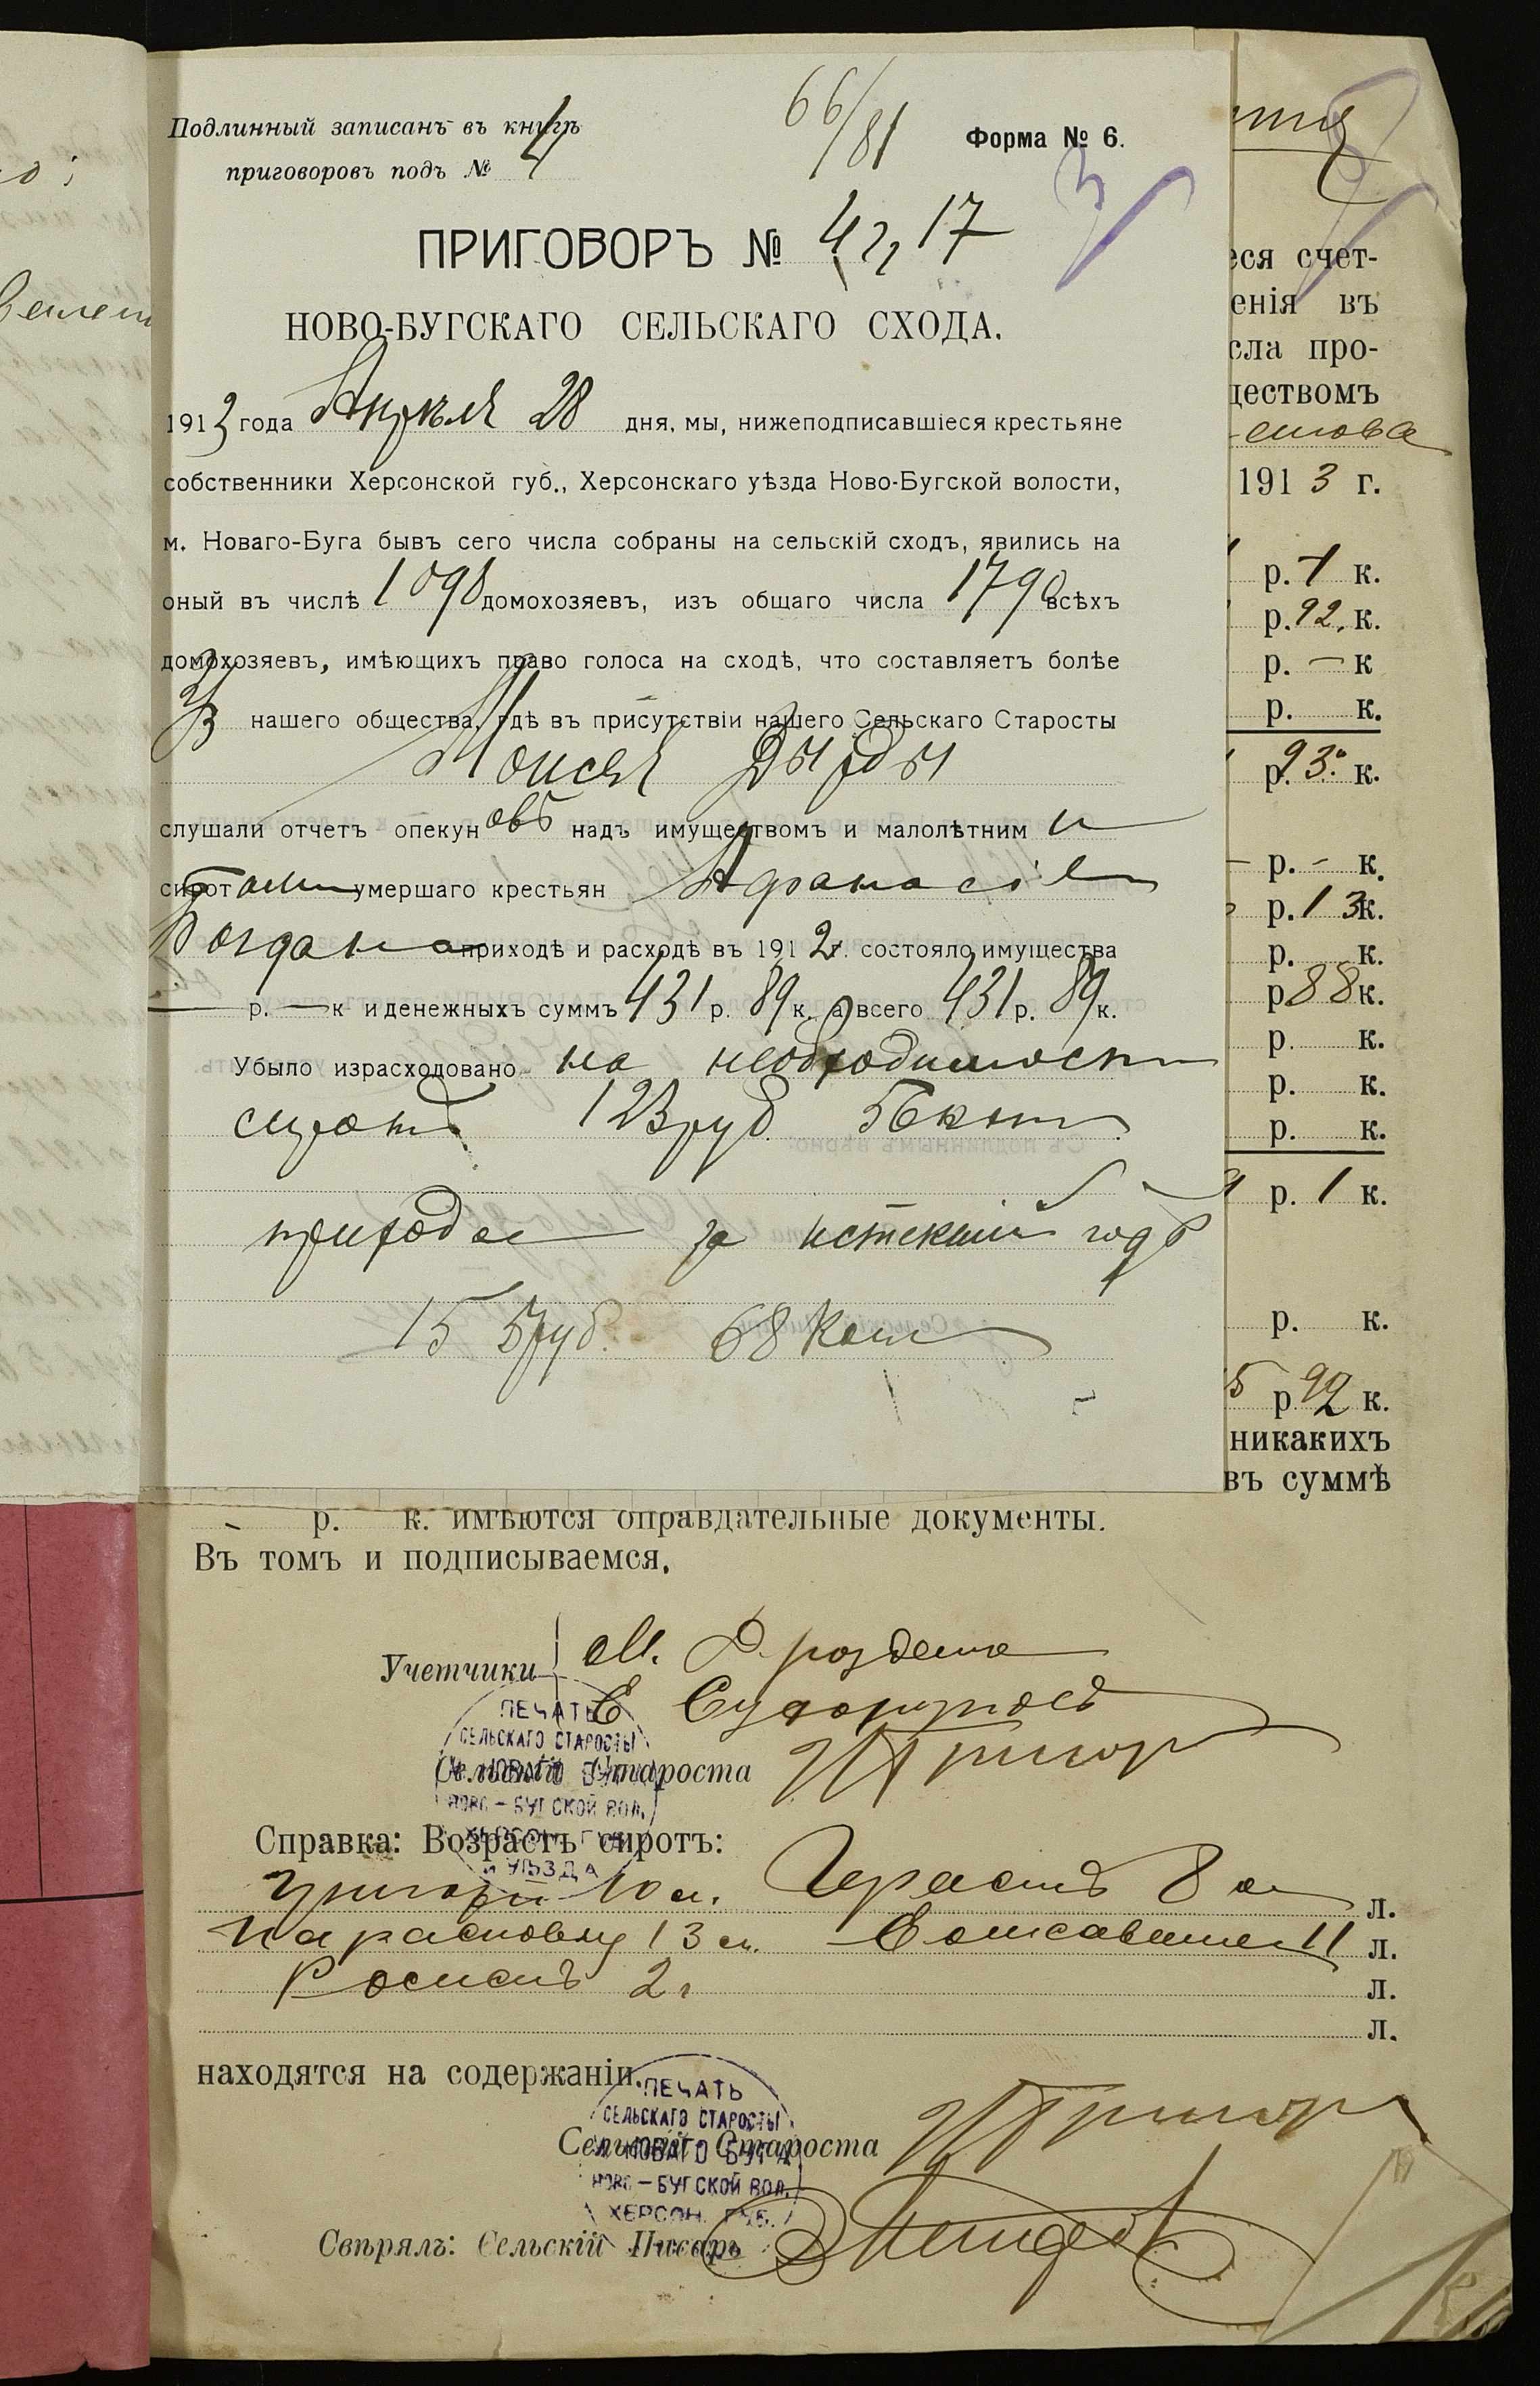 Подлинный записанъ въ книгѣ
приговоровъ подъ № 4
66/81
Форма № 6.
ПРИГОВОРЪ № 4 17
НОВО-БУГСКАГО СЕЛЬСКАГО СХОДА.
1913 года Апрѣля 28 дня, мы, нижеподписавшіеся крестьяне
собственники Херсонской губ., Херсонскаго уѣзда Ново-Бугской волости,
м. Новаго-Буга бывъ сего числа собраны на сельскій сходъ, явились на
оный въ числѣ 1098 домохозяевъ, изъ общаго числа 1790 всѣхъ
домохозяевъ, имѣющихъ право голоса на сходѣ, что составляетъ болѣе
нашего общества, гдѣ въ присутствіи нашего Сельскаго Старосты
Моисея Дырды
слушали отчетъ опекуновъ надъ имуществомъ и малолѣтними
сиротами умершаго крестьян Афанасія
Богдана приходѣ и расходѣ въ 1912 г. состояло имущества
— р. — к и денежныхъ суммъ 431 р. 89 к. а всего 431 р. 89 к.
Убыло израсходовано на необходимости
сиротъ 123 руб. 56 коп
прихода за истекшій годъ
15 руб. 68 коп
еся счет-
енія въ
сла про-
ществомъ
1913 г.
р. 1 к.
р. 92 к.
р. — к
р. к.
р. 93 к.
— р. - к.
р. 13 к.
р. к.
р 88 к.
р. к.
р. к.
р. к.
р. 1 к.
р. к.
5 р 92 к.
никакихъ
въ суммѣ
- р. к. имѣются оправдательные документы.
Въ томъ и подписываемся.
Учетчики М. Дрозденко
Е Сухоруковъ
ПЕЧАТЬ
СЕЛЬСКАГО СТАРОСТЫ
М. НОВАГО БУГА
НОВО-БУГСКОЙ ВОЛ.
ХЕРСОН. ГУБ.
И УѢЗДА
Сельскій Староста
Справка: Возрастъ сиротъ:
Григорій 10 л. Герасимъ 8 л.
Парасковьи 13 л. Елисавета 11 л.
Романъ 2 г л.
л.
находятся на содержаніи.
ПЕЧАТЬ
СЕЛЬСКАГО СТАРОСТЫ
М. НОВАГО БУГА
НОВО-БУГСКОЙ ВОЛ.
ХЕРСОН. ГУБ.
Сельскій Староста
Свѣрялъ: Сельскій Писарь